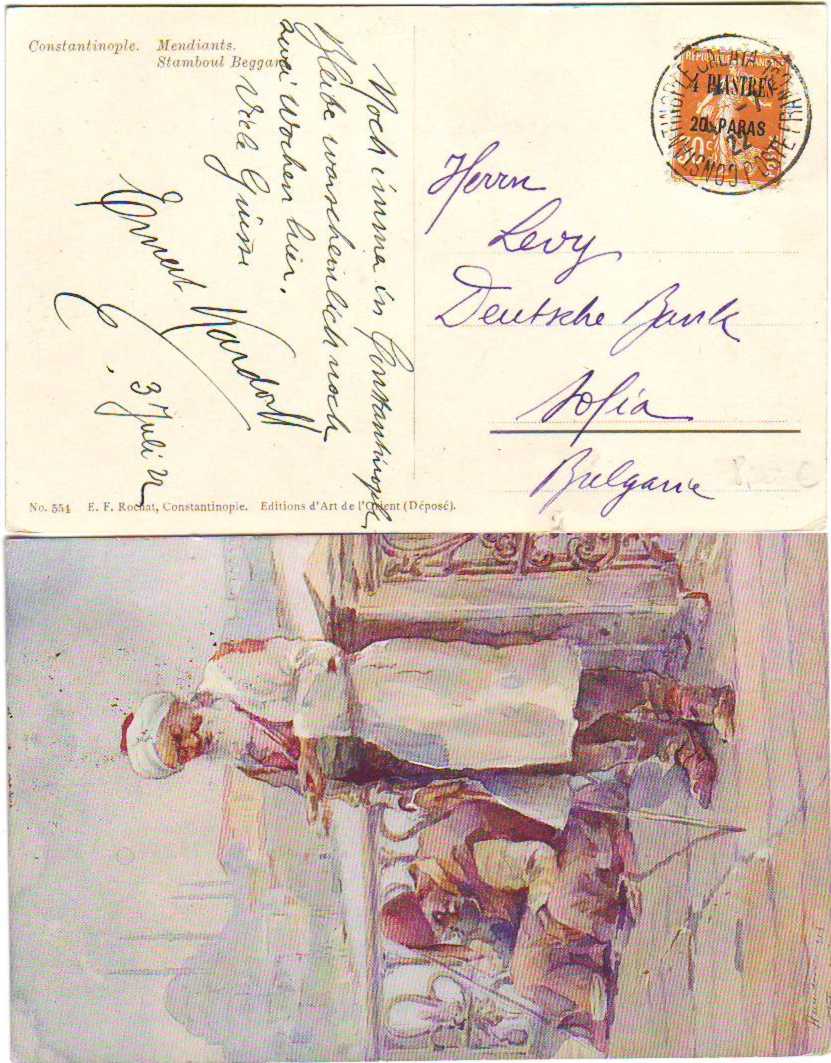 Constantinople. Mendiants.
Stamboul Beggars.
Noch imma in Constantinople,
Bleibe warscheinlich noch
zwei Wochen hier.
Viele Grüsse
Ernest
3 Juli 22
Herrn
Levy
Deutsche Bank
Sofia
Bulgarie
REPUBLIQUE FRANÇAISE
4 PIASTRES
20 PARAS
30 c
CONSTANTINOPLE GALATA
POSTE FRANÇ
22
No. 554 E. F. Rochat, Constantinople. Editions d'Art de l'Orient (Déposé).